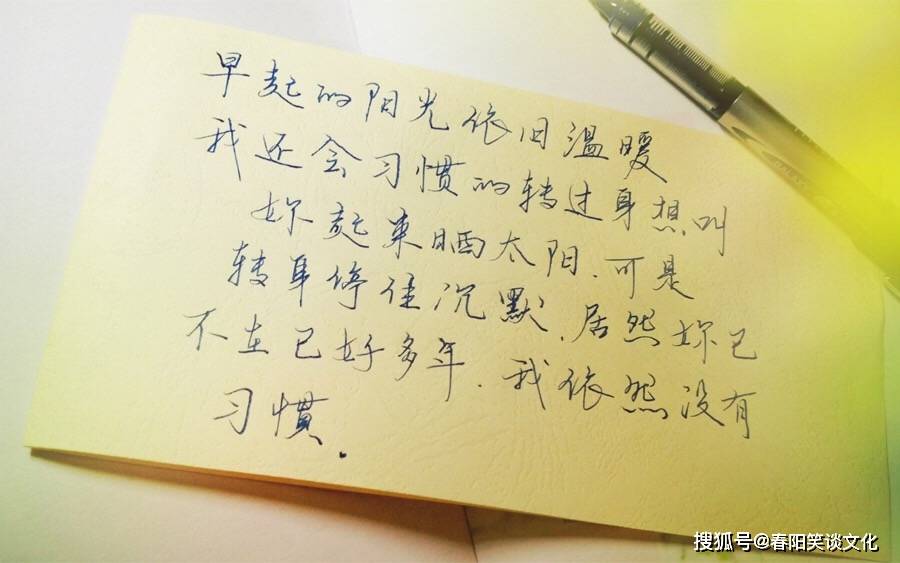 早起的阳光依旧温暖
我还会习惯的转过身想叫
妳起来晒太阳.可是
转身停住沉默.居然妳已
不在已好多年.我依然没有
习惯.
搜狐号@春阳笑谈文化